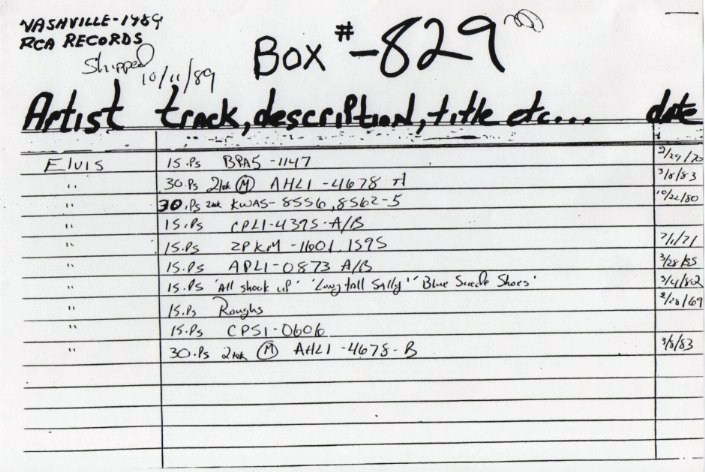 NASHVILLE-1989
RCA RECORDS
Shipped 10/11/89
Box #-829
Artist track, description, title etc... date
ELVIS 15.Ps BPA5-1147
" 30.Ps 2trk (M) AHL1-4678 3/8/83
" 30.Ps 2trk KWAS-8556, 8562-5 10/22/80
" 15.Ps CPL1-4395-A/B
" 15.Ps ZPKM-1601, 1595 7/1/71
" 15.Ps APL1-0873 A/B
" 15.Ps "All shook up" "Long tall Sally" "Blue Suede Shoes" 3/4/82
" 15.Ps Roughs
" 15.Ps CPS1-0606
" 30.Ps 2trk (M) AHL1-4678-B 3/8/83